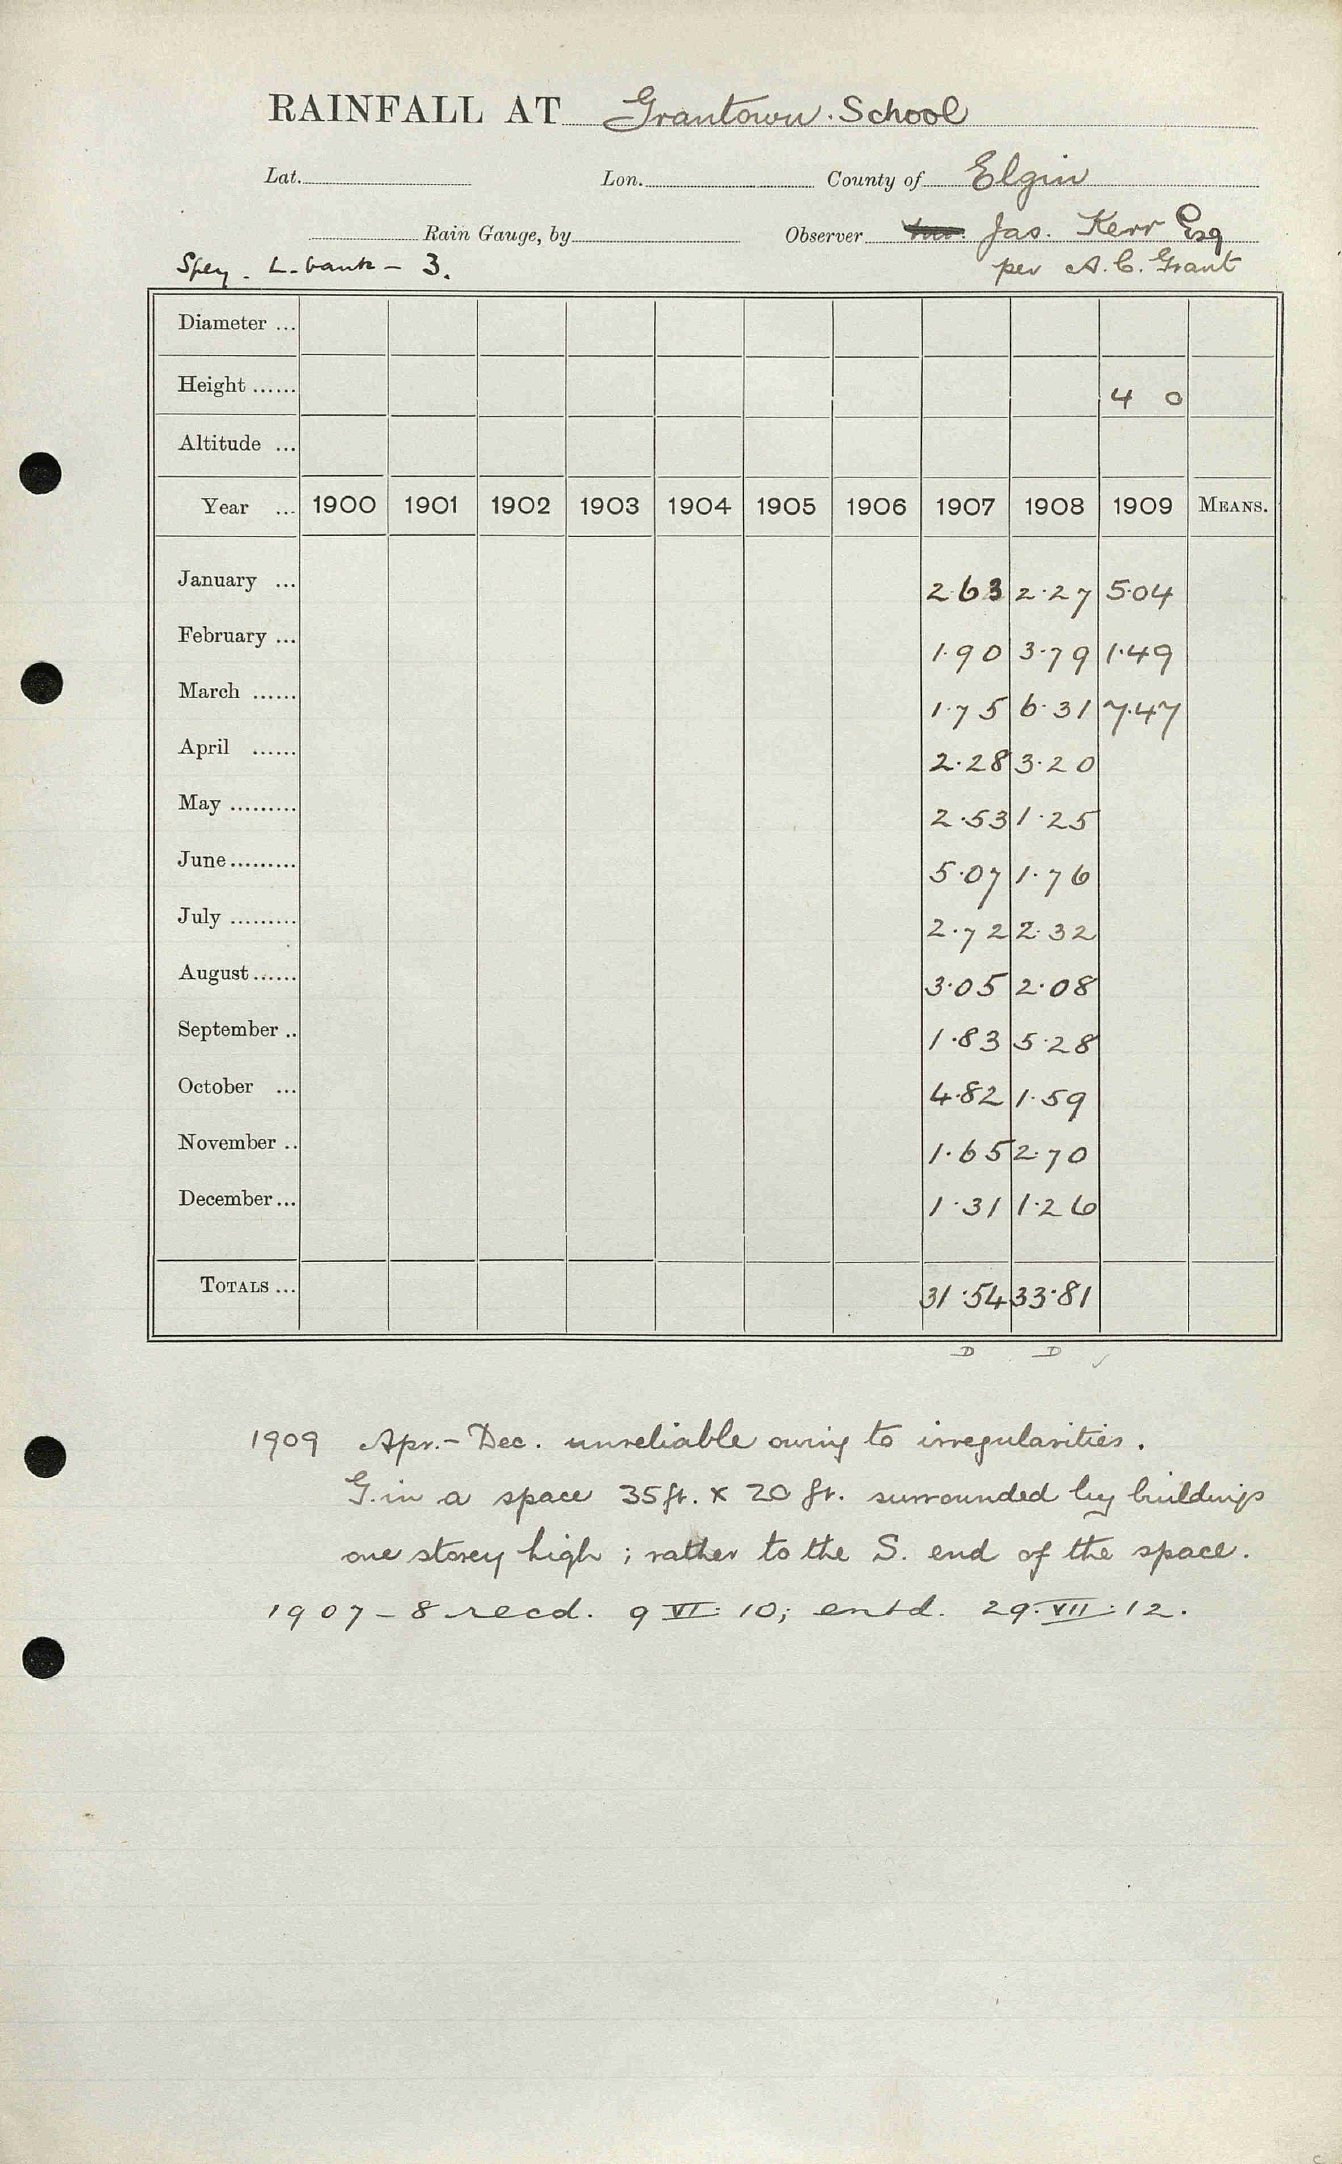 RAINFALL AT Grantown. School
Lat. Lon. County of Elgin
Rain Gauge, by Observer Jas. Kerr Esq
Spey. L. bank - 3. per A. C. Grant
Diameter ...
Height ...... 4 0
Altitude ...
Year ... 1900 1901 1902 1903 1904 1905 1906 1907 1908 1909 MEANS.
January ... 2.63 2.27 5.04
February ... 1.90 3.79 1.49
March ...... 1.75 6.31 7.47
April ...... 2.28 3.20
May ......... 2.53 1.25
June ......... 5.07 1.76
July ......... 2.72 2.32
August ...... 3.05 2.08
September .. 1.83 5.28
October ... 4.82 1.59
November .. 1.65 2.70
December ... 1.31 1.26
TOTALS ... 31.54 33.81
D D ✓
1909 Apr. - Dec. unreliable owing to irregularities.
G. in a space 35 ft. x 20 ft. surrounded by buildings
one storey high ; rather to the S. end of the space.
1907 - 8 recd. 9 VI. 10; entd. 29. VII. 12.